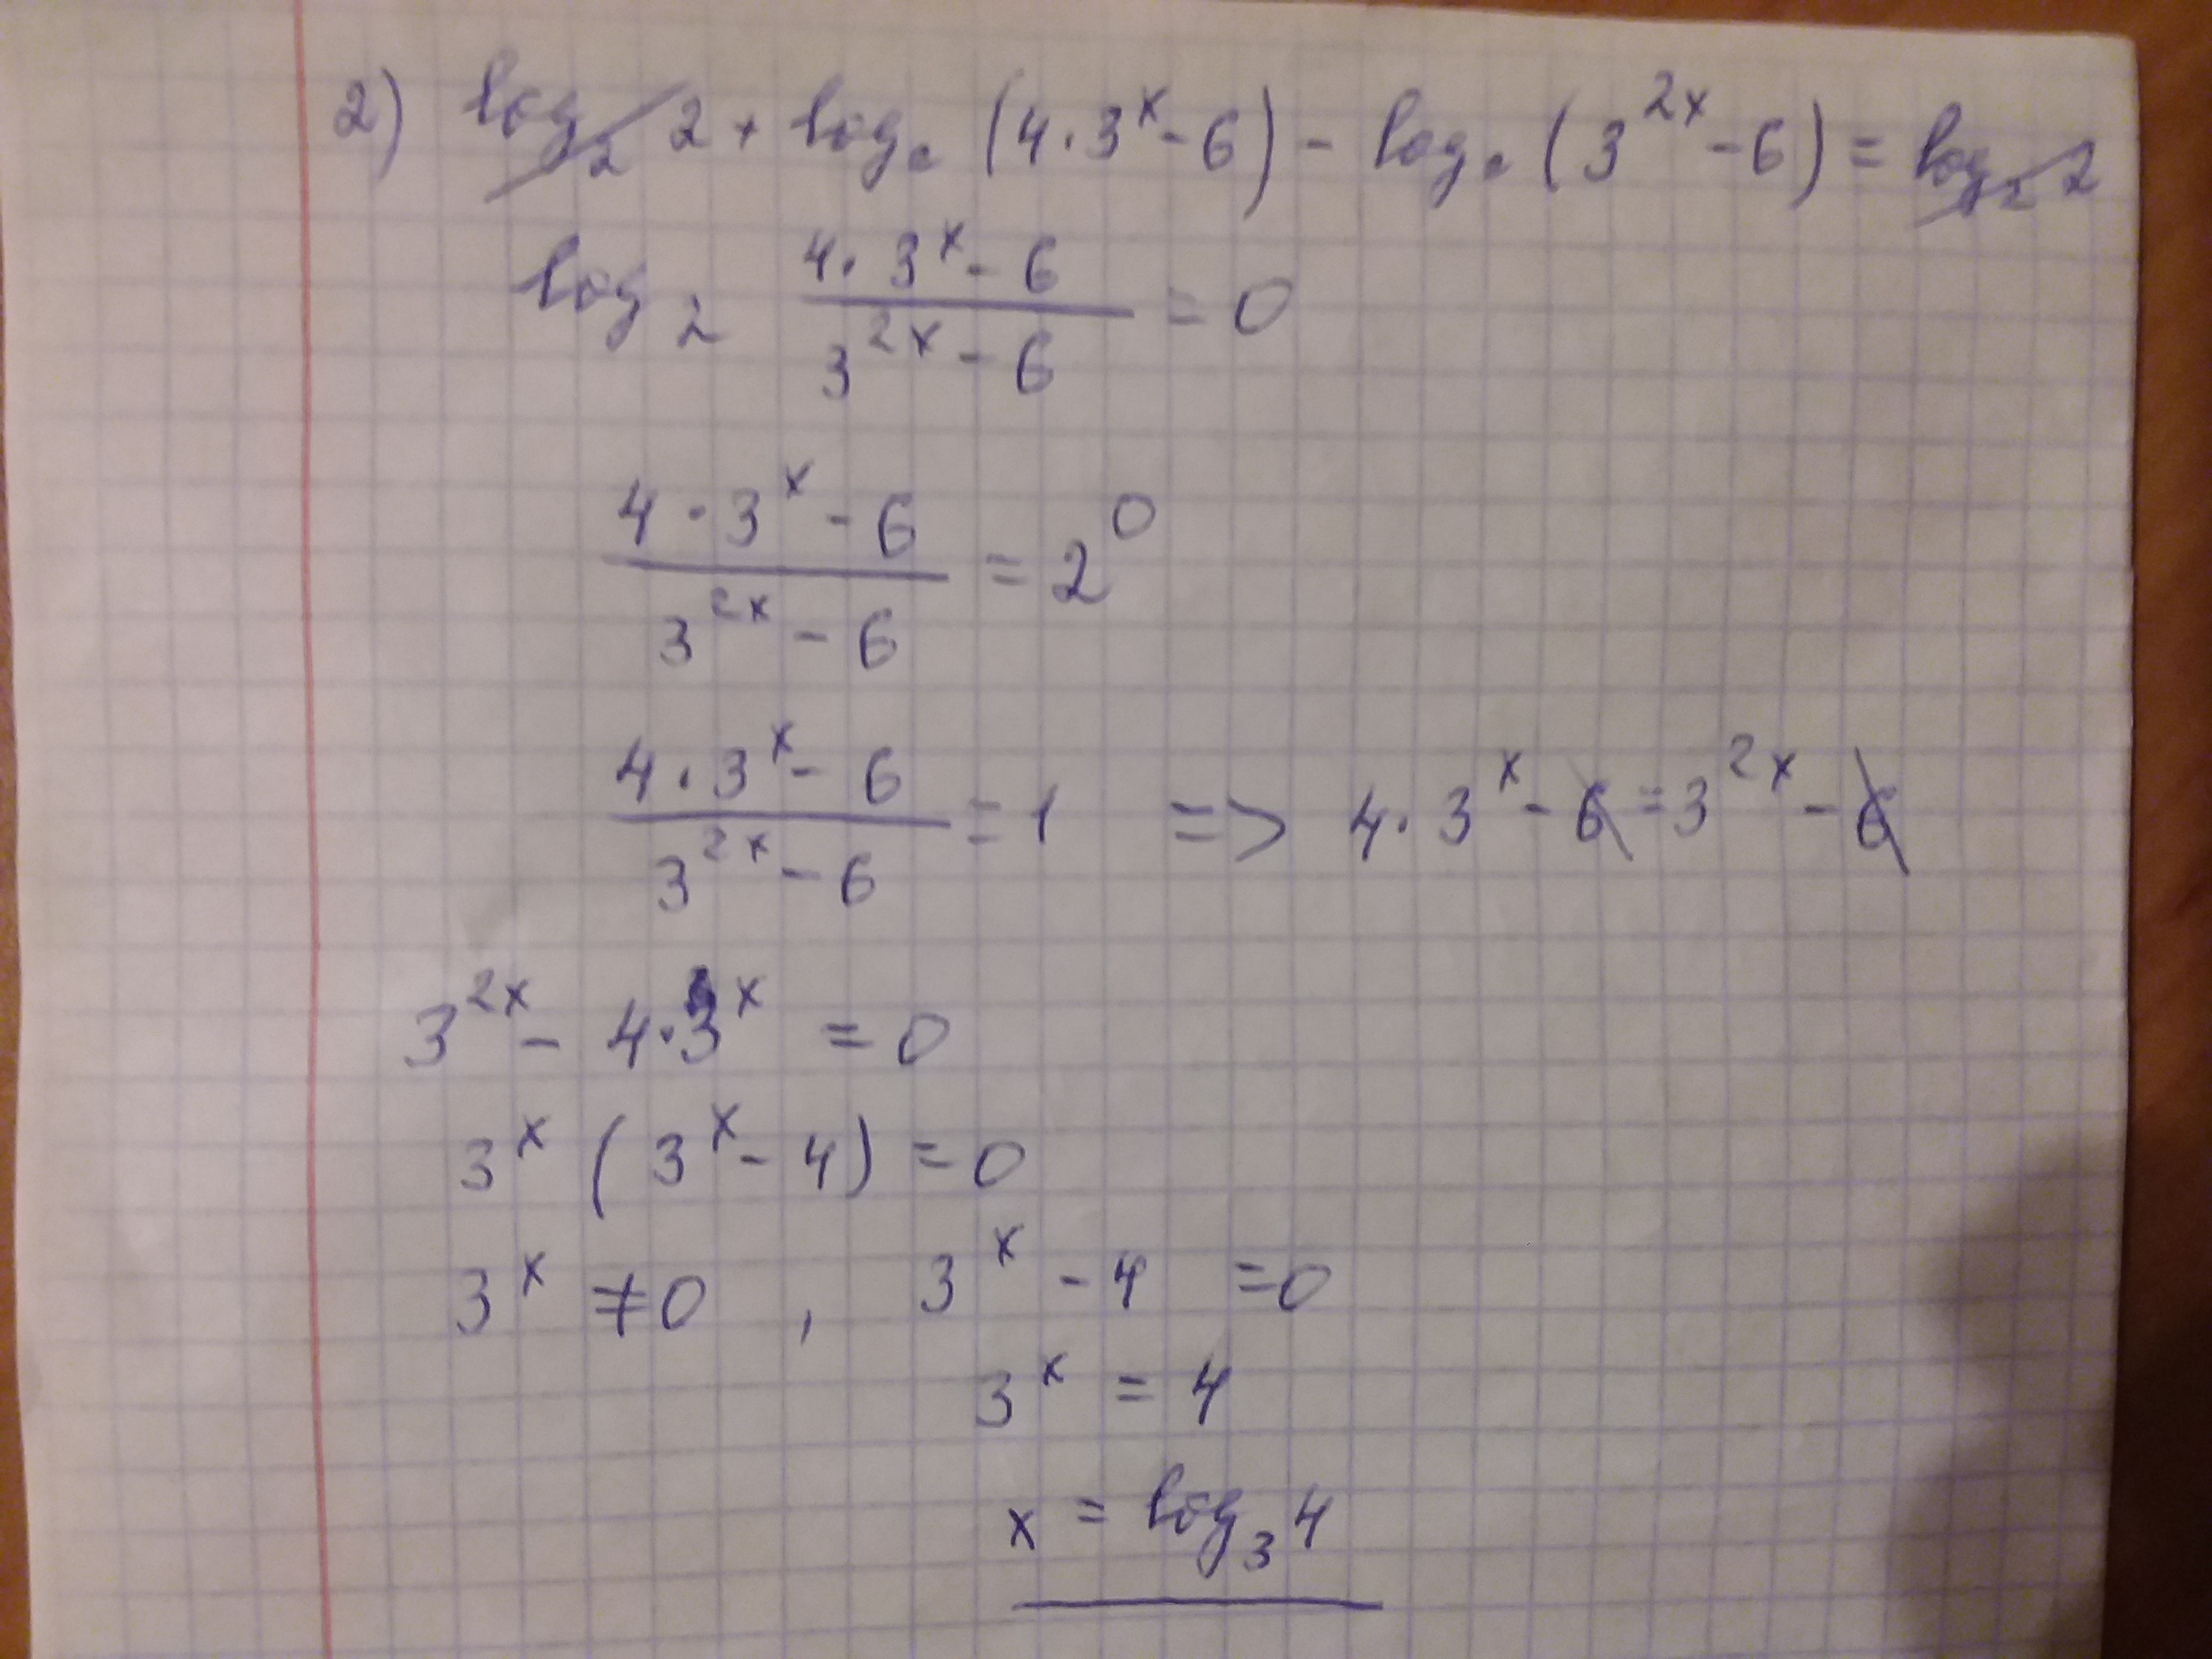 2) log₂ 2 + log₂ (4·3ˣ - 6) - log₂ (3²ˣ - 6) = log₂ 2
log₂ (4·3ˣ - 6)/(3²ˣ - 6) = 0
(4·3ˣ - 6)/(3²ˣ - 6) = 2⁰
(4·3ˣ - 6)/(3²ˣ - 6) = 1 => 4·3ˣ - 6 = 3²ˣ - 6
3²ˣ - 4·3ˣ = 0
3ˣ (3ˣ - 4) = 0
3ˣ ≠ 0 , 3ˣ - 4 = 0
3ˣ = 4
x = log₃ 4